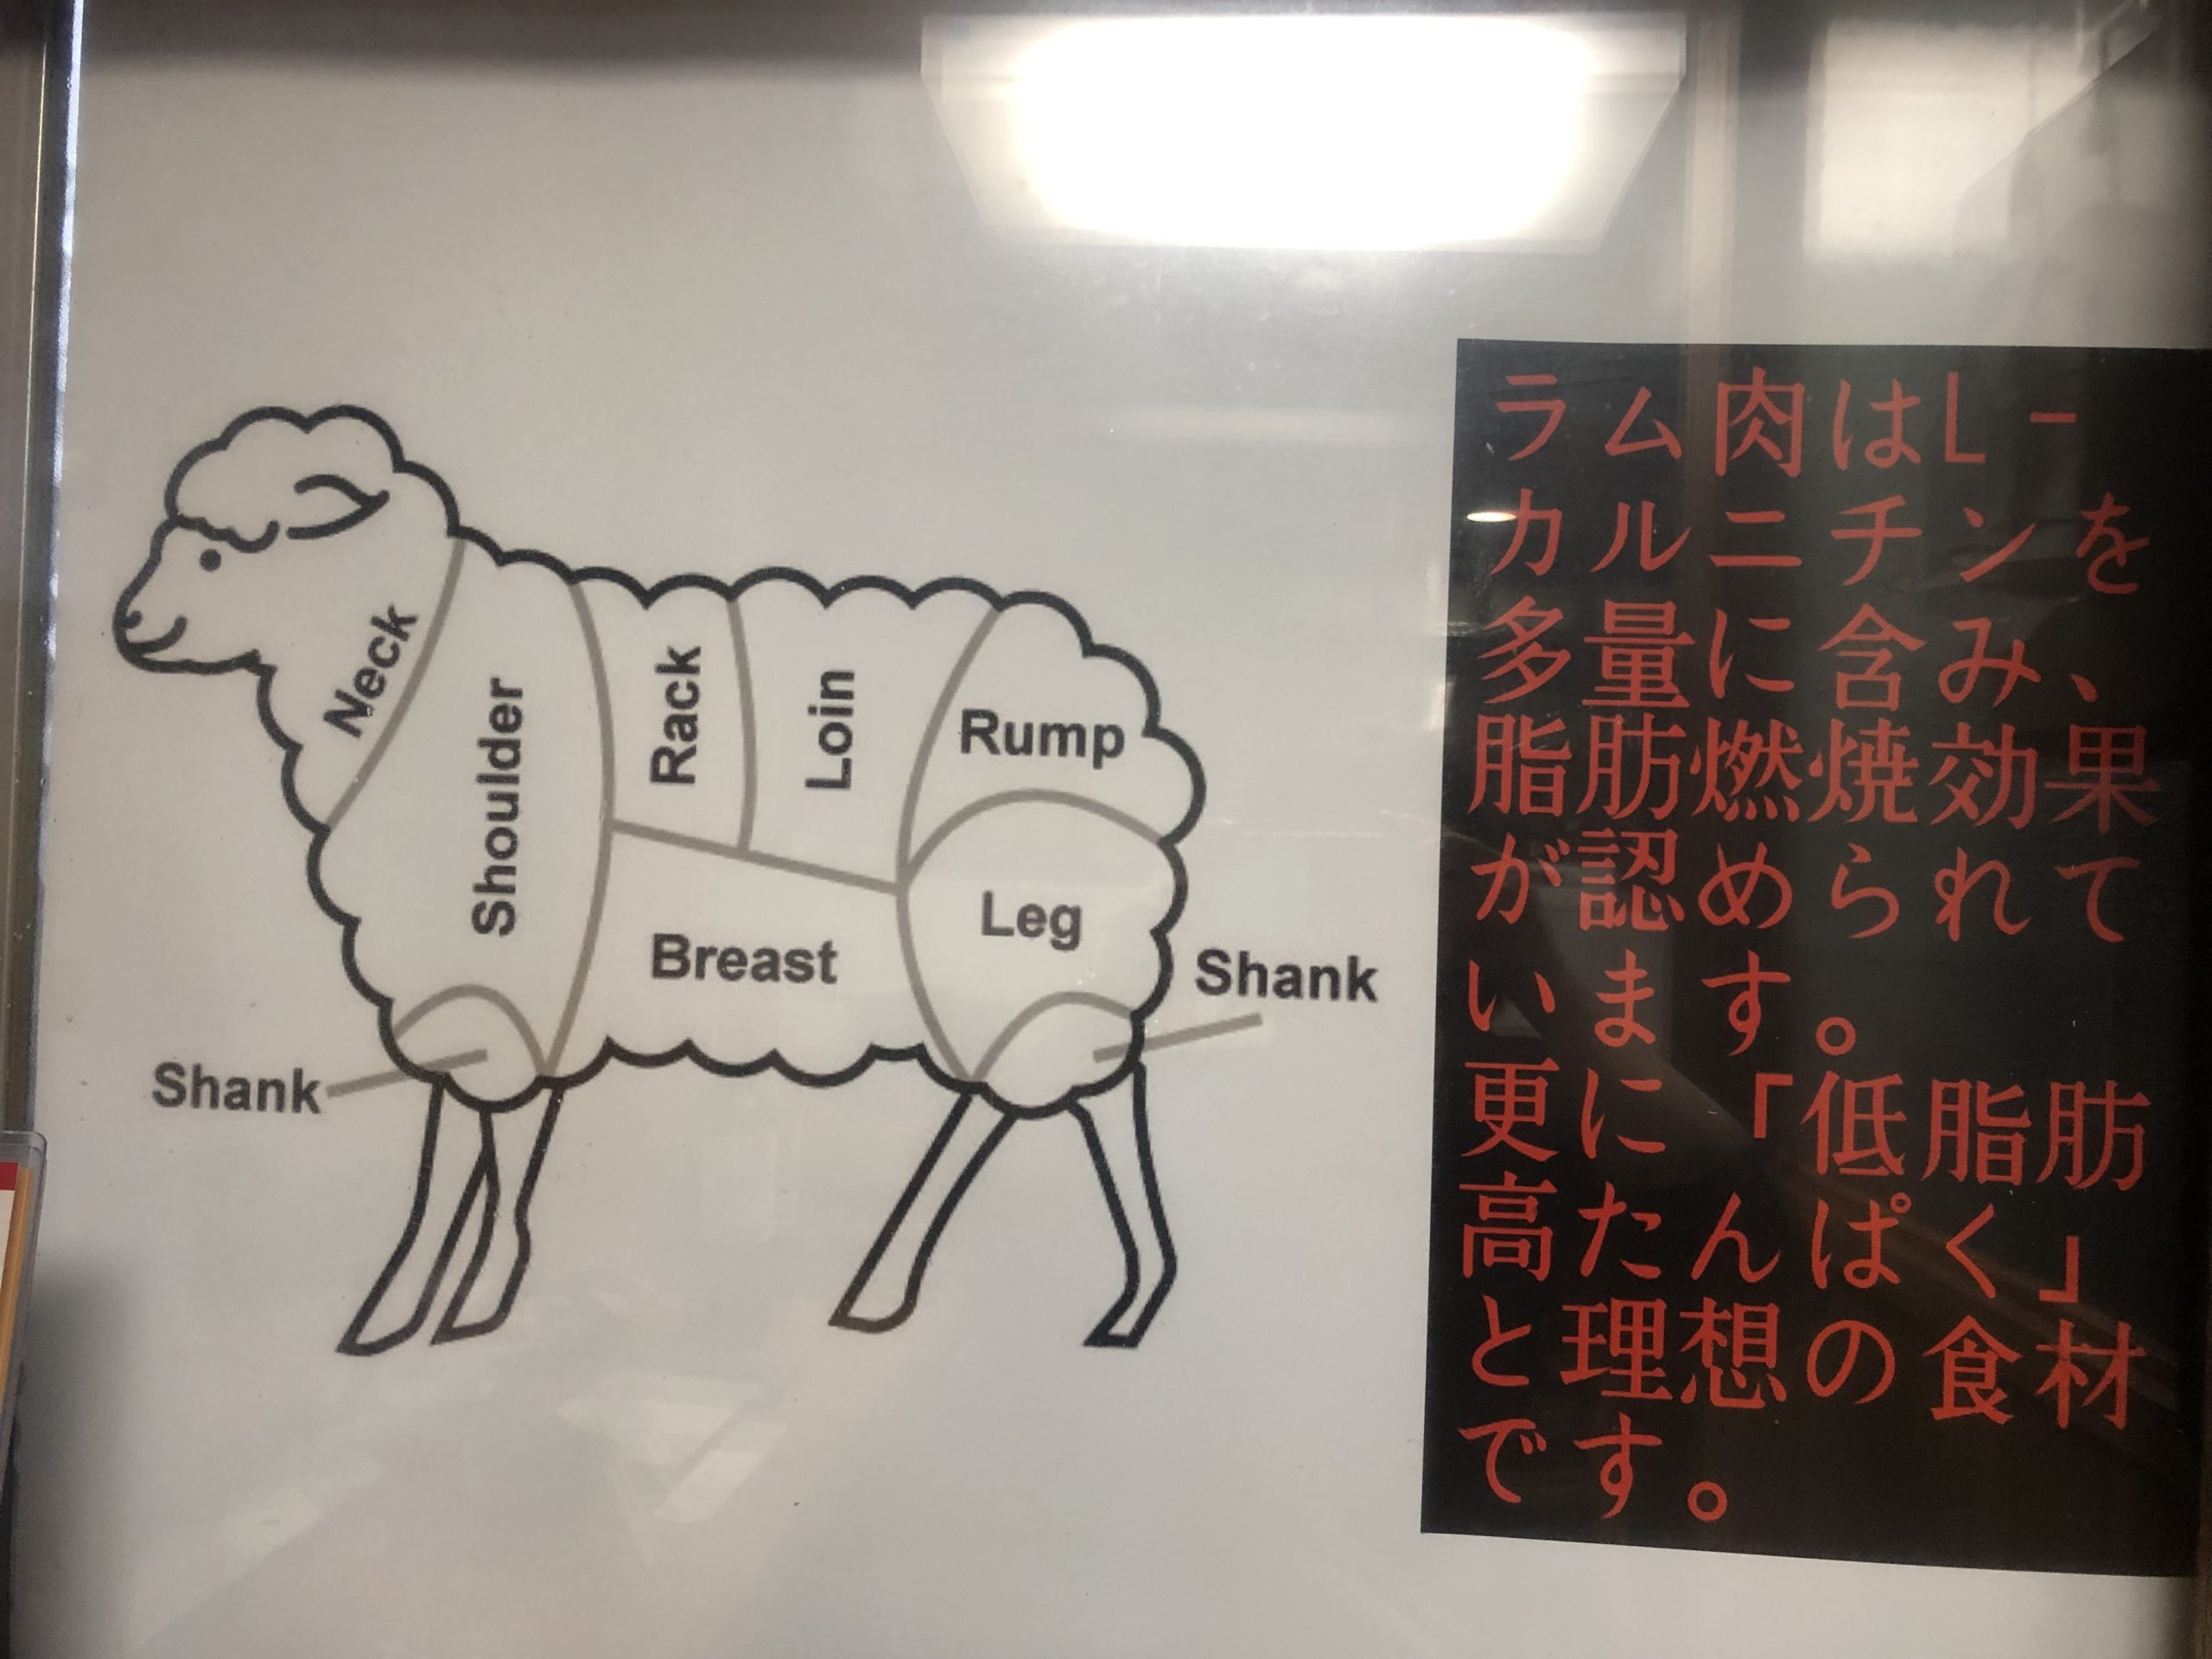 Neck
Shoulder
Rack
Loin
Rump
Breast
Leg
Shank
Shank
ラム肉はL-
カルニチンを
多量に含み、
脂肪燃焼効果
が認められて
います。
更に「低脂肪
高たんぱく」
と理想の食材
です。